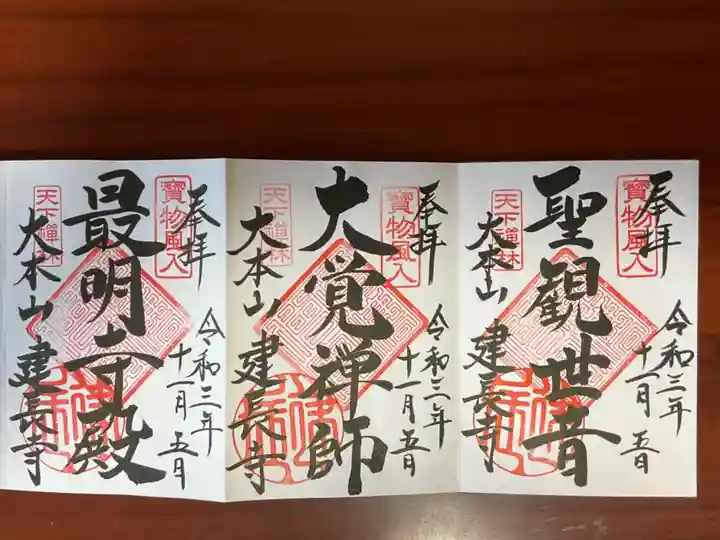 奉拝
寳物風入
聖観世音
令和三年
十一月五日
天下禅林
大本山 建長寺
奉拝
寳物風入
大覚禅師
令和三年
十一月五日
天下禅林
大本山 建長寺
奉拝
寳物風入
最明寺殿
令和三年
十一月五日
天下禅林
大本山 建長寺